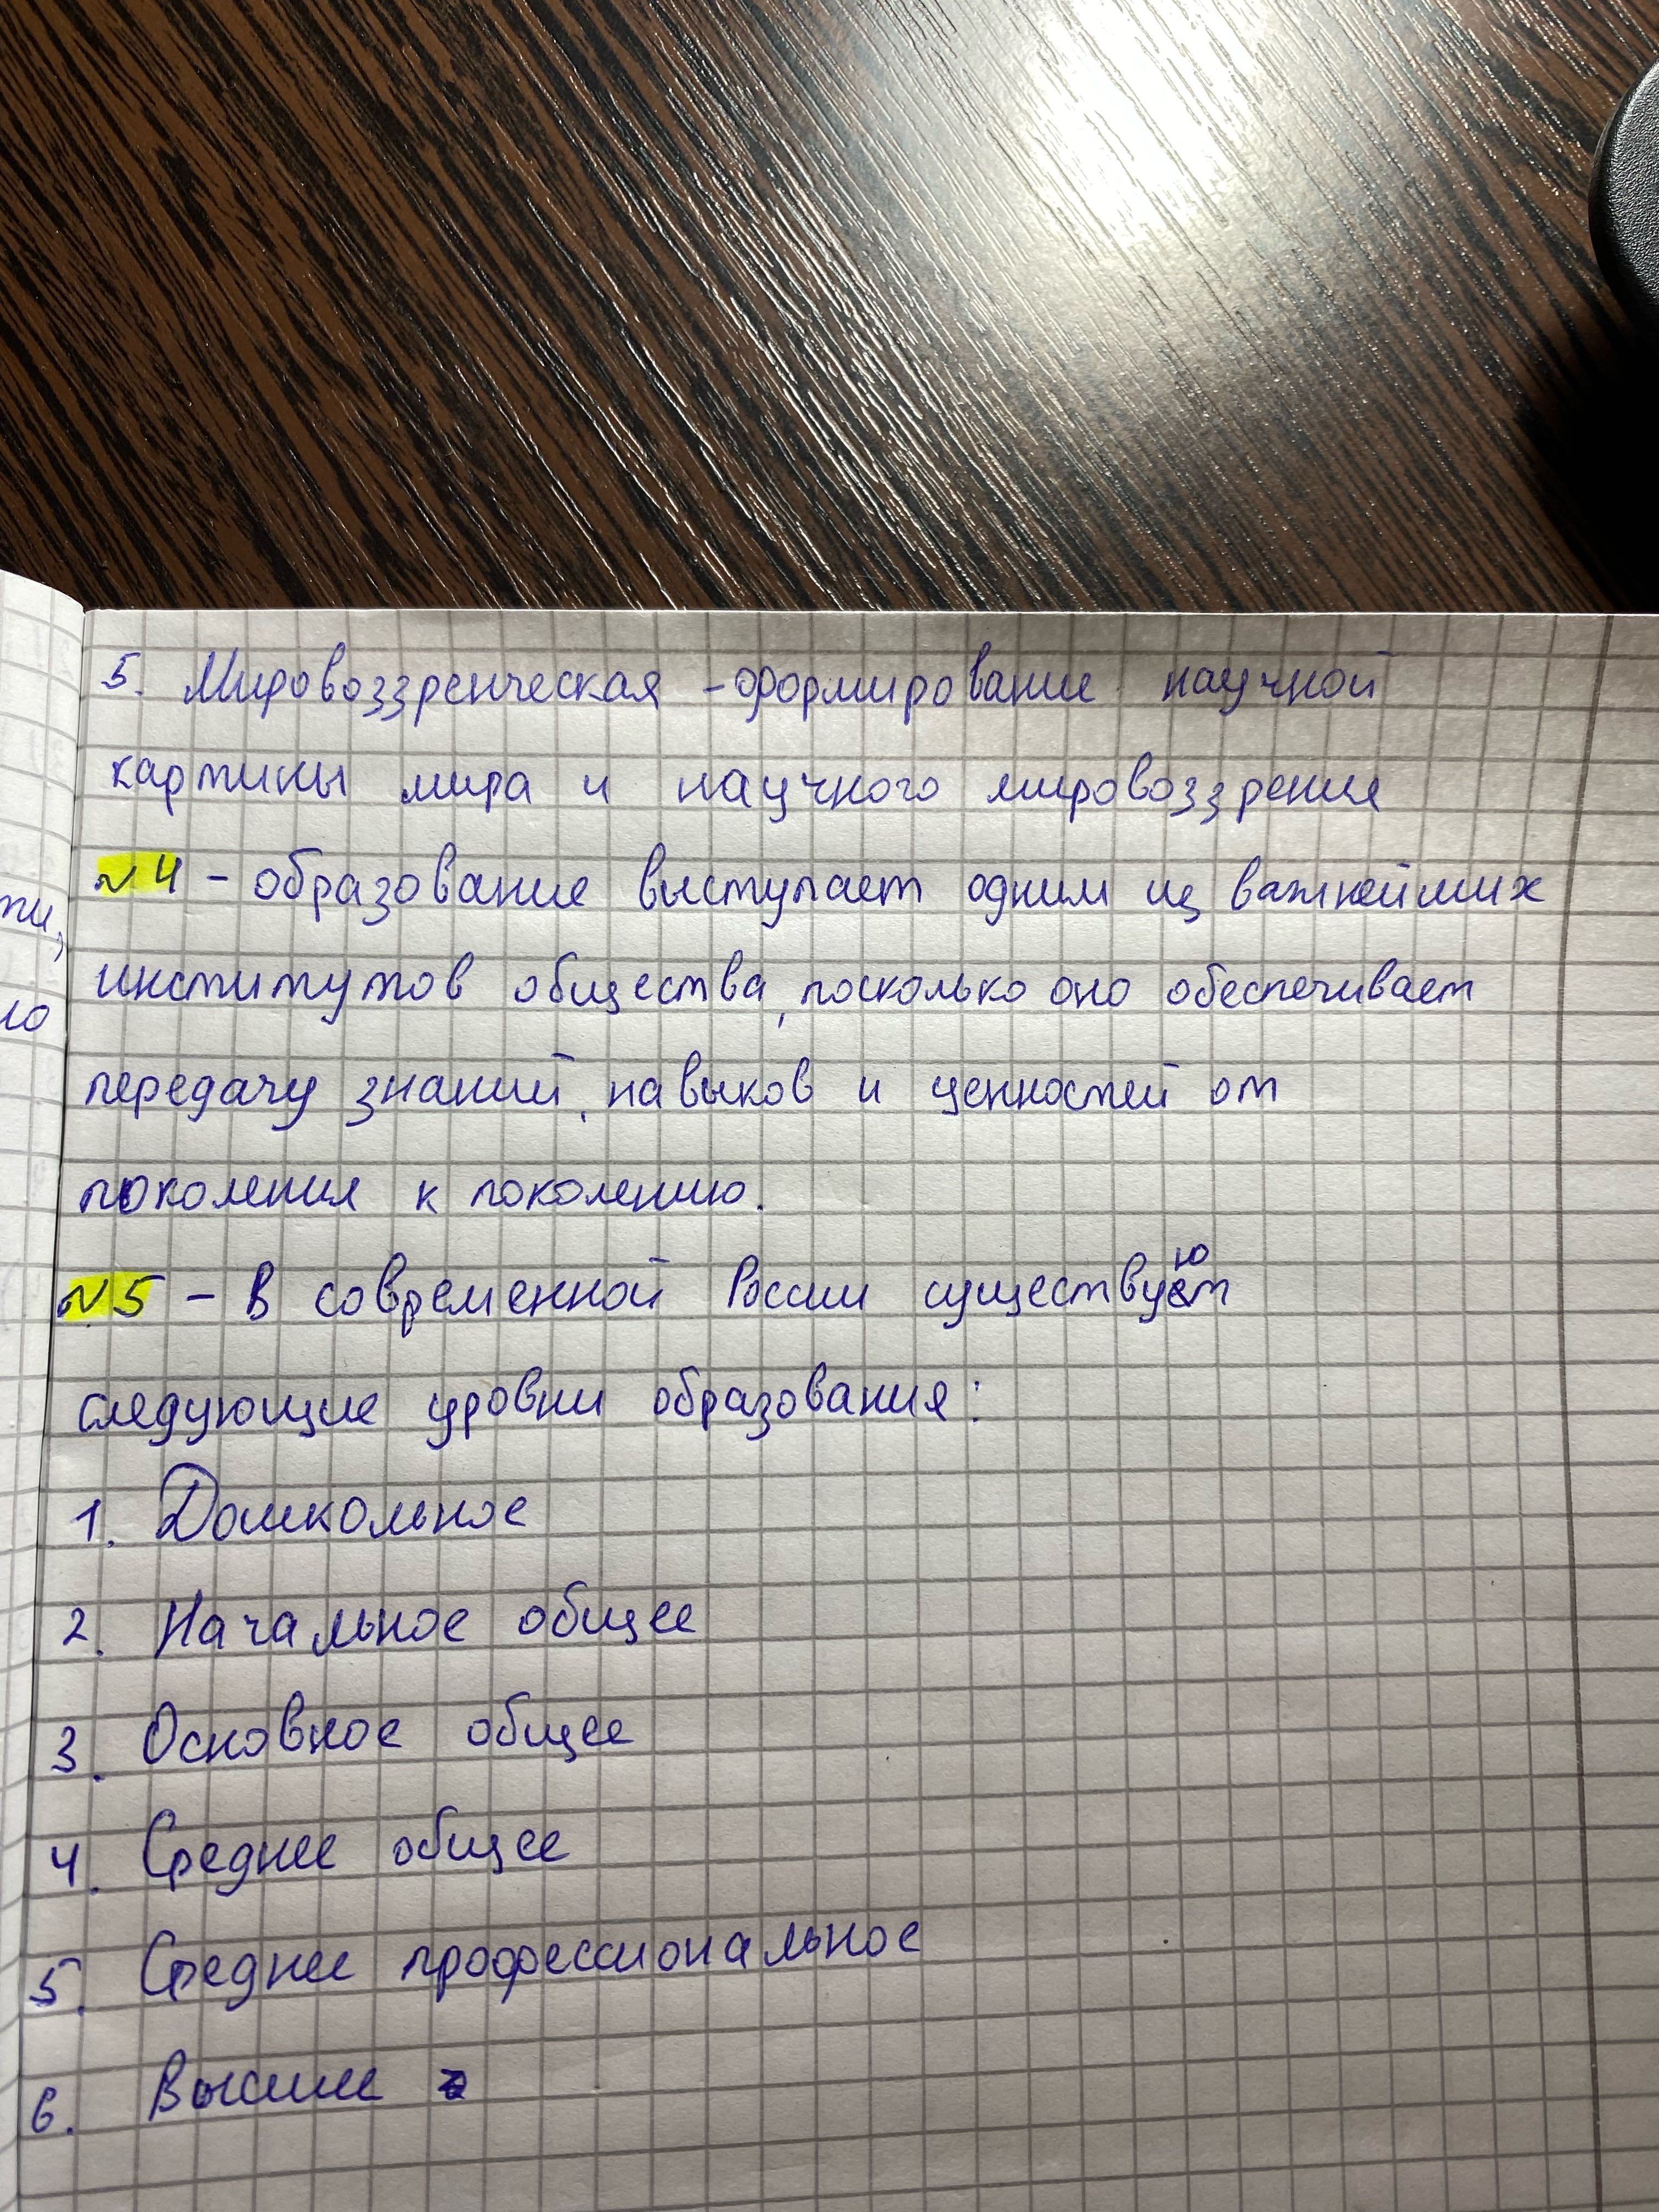 5. Мировоззренческая - формирование научной
картины мира и научного мировоззрения
№4 - образование выступает одним из важнейших
институтов общества, поскольку оно обеспечивает
передачу знаний, навыков и ценностей от
поколения к поколению.
№5 - В современной России существуют
следующие уровни образования:
1. Дошкольное
2. Начальное общее
3. Основное общее
4. Среднее общее
5. Среднее профессиональное
6. Высшее